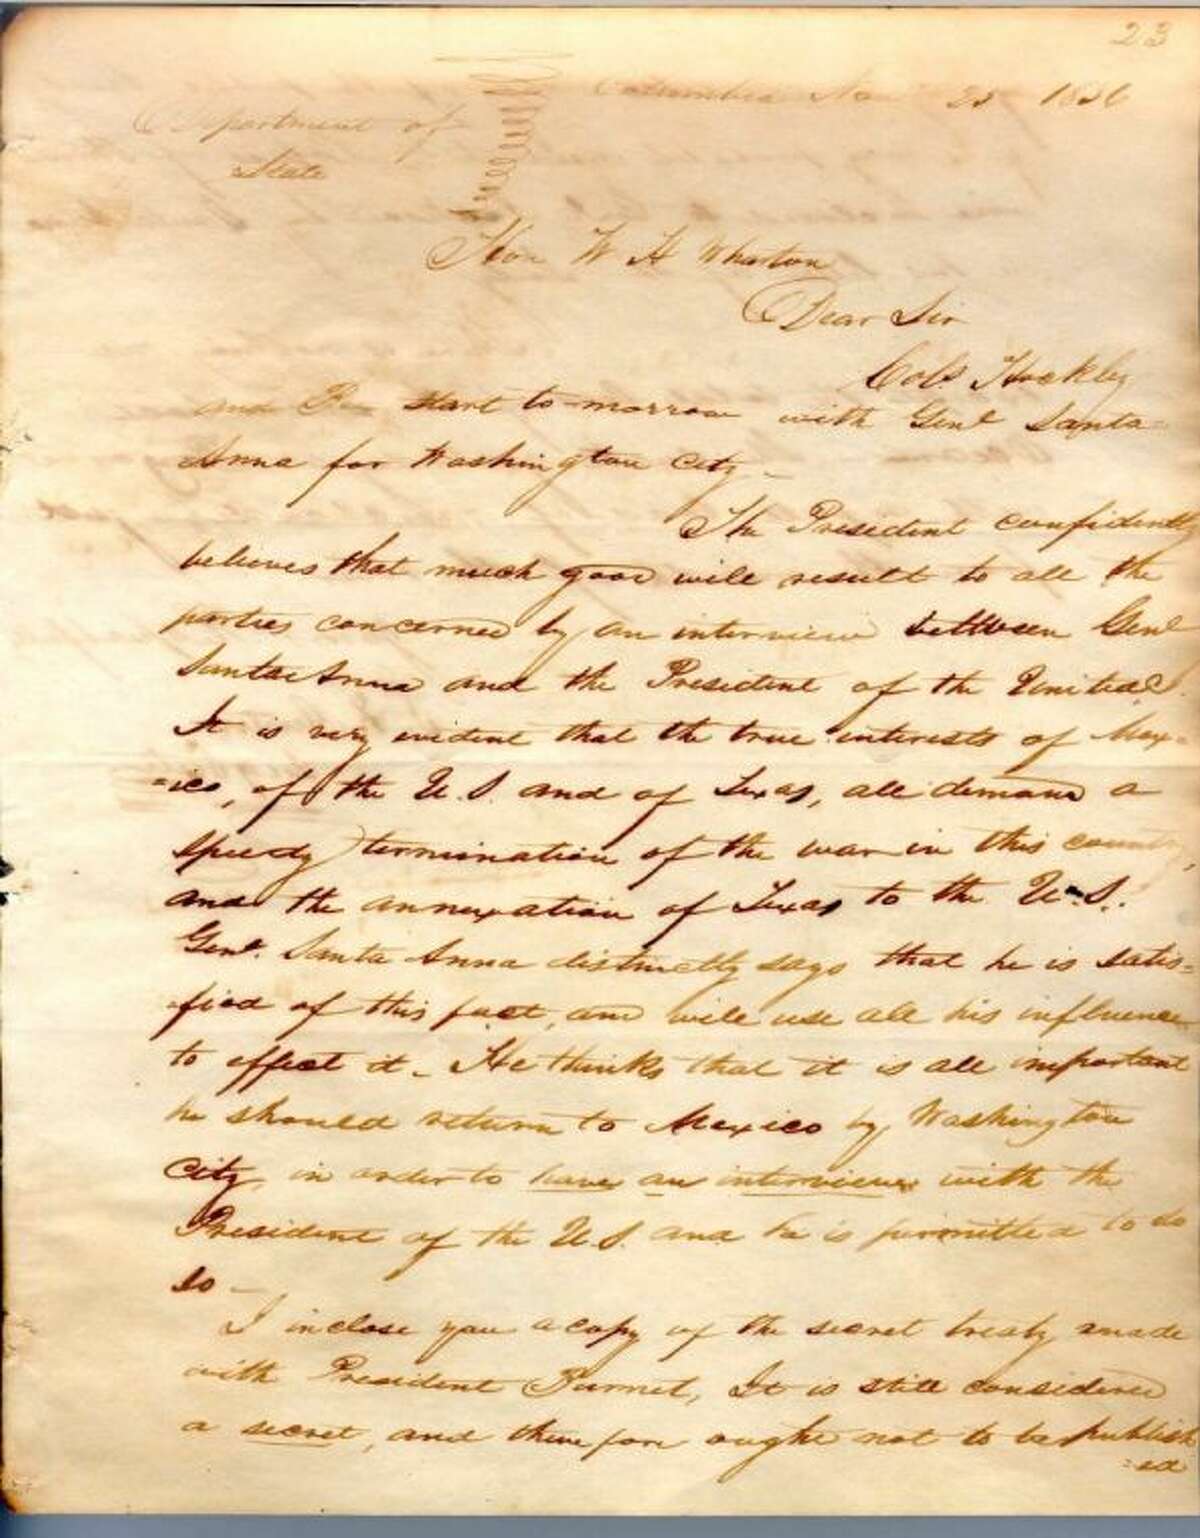 23
Columbia Nov 25 1836
Department of
State
Hon W H Wharton
Dear Sir
Cols. Hockley
and start to-morrow with Genl Santa-
Anna for Washington City -
The President confidently
believes that much good will result to all the
parties concerned by an interview between Genl
Santa Anna and the President of the United S.
It is very evident that the true interests of Mex-
=ico, of the U.S. and of Texas, all demand a
speedy termination of the war in this country,
and the annexation of Texas to the U.S.
Genl. Santa Anna distinctly says that he is satis=
fied of this fact, and will use all his influence
to effect it - He thinks that it is all important
he should return to Mexico by Washington
City, in order to have an interview with the
President of the U.S. and he is permitted to do
so -
I inclose you a copy of the secret treaty made
with President Burnet, It is still considered
a secret, and therefore ought not to be publish
=ed